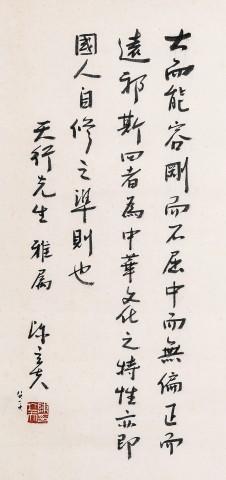 大而能容剛而不屈中而無偏正而
遠邪斯四者為中華文化之特性亦即
國人自修之準則也
天行先生雅屬
陳立夫